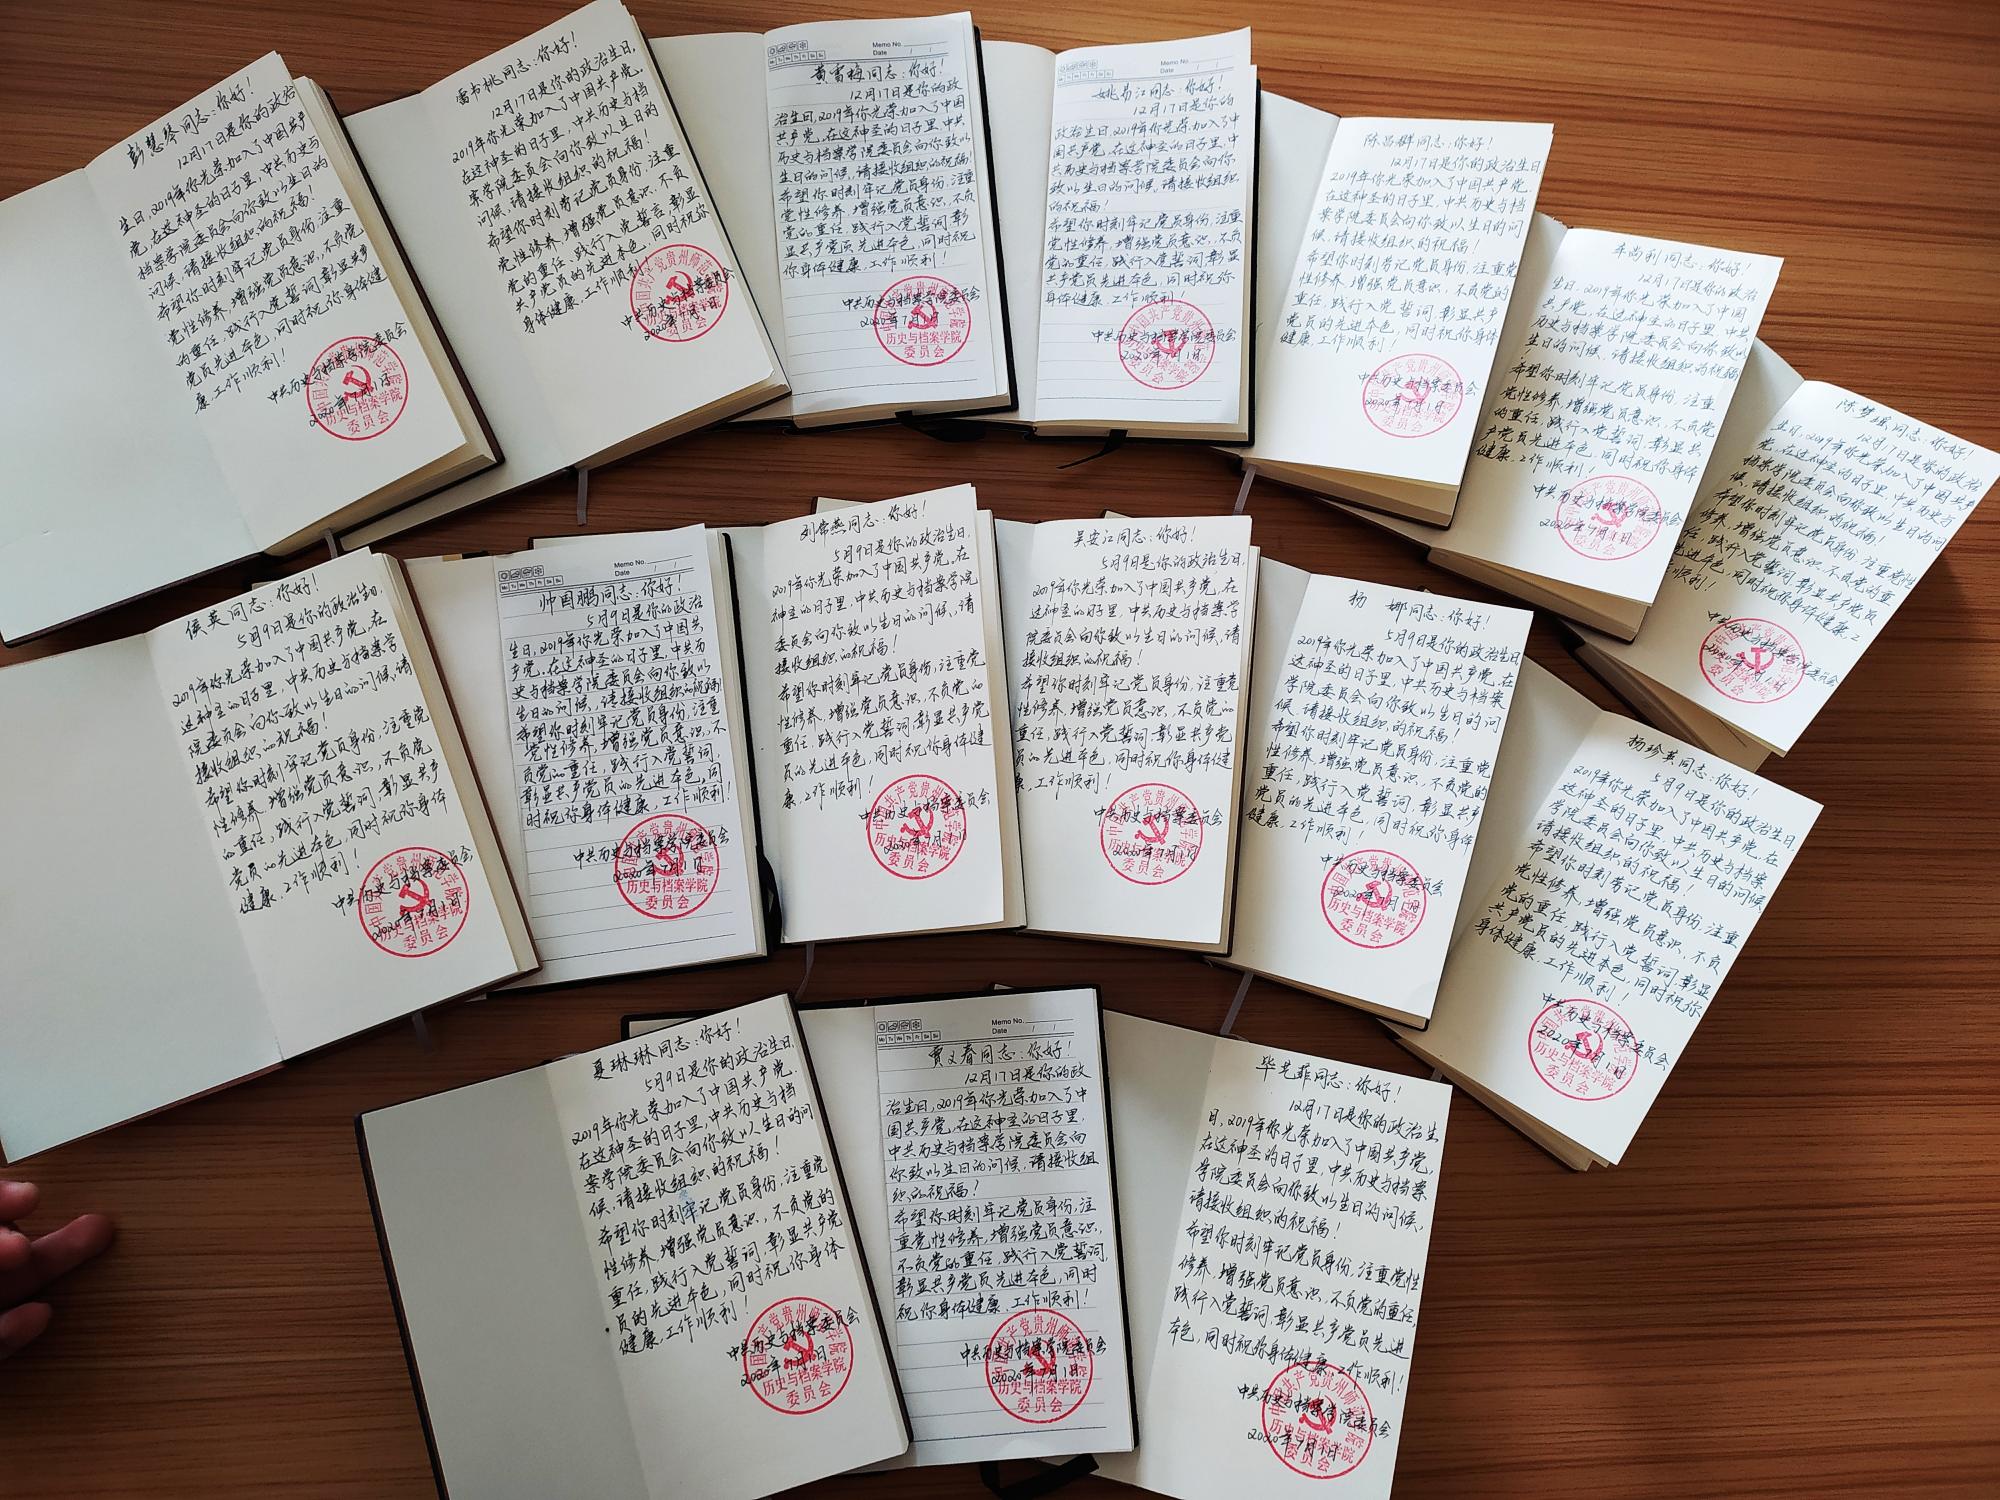 彭慧琴同志:你好!
12月17日是你的政治
生日,2019年你光荣加入了中国共产
党,在这神圣的日子里,中共历史与
档案学院委员会向你致以生日的
问候,请接收组织的祝福!
希望你时刻牢记党员身份,注重
党性修养,增强党员意识,不负党
的重任,践行入党誓词,彰显共产
党员先进本色,同时祝你身体健
康,工作顺利!
中共历史与档案学院委员会
2020年7月1日
雷书桃同志:你好!
12月17日是你的政治生日,
2019年你光荣加入了中国共产党,
在这神圣的日子里,中共历史与档
案学院委员会向你致以生日的
问候,请接收组织的祝福!
希望你时刻牢记党员身份,注重
党性修养,增强党员意识,不负
党的重任,践行入党誓言,彰显
共产党员的先进本色,同时祝你
身体健康,工作顺利!
中共历史与档案学院委员会
2020年7月1日
Memo No.
Date / /
黄雪梅同志:你好!
12月17日是你的政
治生日,2019年你光荣加入了中国
共产党,在这神圣的日子里,中共
历史与档案学院委员会向你致以
生日的问候,请接收组织的祝福!
希望你时刻牢记党员身份,注重
党性修养,增强党员意识,不负
党的重任,践行入党誓词,彰
显共产党员先进本色,同时祝
你身体健康,工作顺利!
中共历史与档案学院委员会
2020年7月1日
历史与档案学院
委员会
Memo No.
Date / /
姚易江同志:你好!
12月17日是你的
政治生日,2019年你光荣加入了中
国共产党,在这神圣的日子里,中
共历史与档案学院委员会向你
致以生日的问候,请接收组织
的祝福!
希望你时刻牢记党员身份,注重
党性修养,增强党员意识,不负
党的重任,践行入党誓词,彰显
共产党员先进本色,同时祝你
身体健康,工作顺利
中共历史与档案学院委员会
2020年7月1日
陈昌群同志:你好!
12月17日是你的政治生日,
2019年你光荣加入了中国共产党,
在这神圣的日子里,中共历史与档
案学院委员会向你致以生日的问
候,请接收组织的祝福!
希望你时刻牢记党员身份,注重党
性修养,增强党员意识,不负党的
重任,践行入党誓词,彰显共产
党员的先进本色,同时祝你身体
健康,工作顺利!
中共历史与档案委员会
2020年7月1日
车尚利同志:你好!
12月17日是你的政治
生日,2019年你光荣加入了中国
共产党,在这神圣的日子里,中共
历史与档案学院委员会向你致以
生日的问候,请接收组织的祝福
!
希望你时刻牢记党员身份,注重
党性修养,增强党员意识,不负党
的重任,践行入党誓词,彰显共
产党员先进本色,同时祝你身体
健康,工作顺利!
中共历史与档案学院委员会
2020年7月1日
陈梦瑶同志:你好!
12月17日是你的政治
生日,2019年你光荣加入了中国共产
党,在这神圣的日子里,中共历史与
档案学院委员会向你致以生日的问
候,请接收组织的祝福!
希望你时刻牢记党员身份,注重党性
修养,增强党员意识,不负党的重
先进本色,同时祝你身体健康,工
作顺利!
中共历史与档案学院委员会
2020年7月1日
侯英同志:你好!
5月9日是你的政治生日,
2019年你光荣加入了中国共产党,在
这神圣的日子里,中共历史与档案学
院委员会向你致以生日的问候,请
接收组织的祝福!
希望你时刻牢记党员身份,注重党
性修养,增强党员意识,不负党
的重任,践行入党誓词,彰显共产
党员的先进本色,同时祝你身体
健康,工作顺利!
中共历史与档案委员会
2020年7月1日
历史与档案学院
委员会
Memo No.
Date / /
帅国鹏同志:你好!
5月9日是你的政治
生日,2019年你光荣加入了中国共
产党,在这神圣的日子里,中共历
史与档案学院委员会向你致以
生日的问候,请接收组织的祝福!
希望你时刻牢记党员身份,注重
党性修养,增强党员意识,不
负党的重任,践行入党誓词,
彰显共产党员的先进本色,同
时祝你身体健康,工作顺利!
中共历史与档案学院委员会
2020年7月1日
历史与档案学院
委员会
刘常燕同志:你好!
5月9日是你的政治生日,
2019年你光荣加入了中国共产党,在
神圣的日子里,中共历史与档案学院
委员会向你致以生日的问候,请
接收组织的祝福!
希望你时刻牢记党员身份,注重党
性修养,增强党员意识,不负党的
重任,践行入党誓词,彰显共产党
员的先进本色,同时祝你身体健
康,工作顺利!
中共历史与档案委员会
2020年7月1日
吴安江同志:你好!
5月9日是你的政治生日,
2019年你光荣加入了中国共产党,在
这神圣的日子里,中共历史与档案学
院委员会向你致以生日的问候,请
接收组织的祝福!
希望你时刻牢记党员身份,注重党
性修养,增强党员意识,不负党的
重任,践行入党誓词,彰显共产党
员的先进本色,同时祝你身体健
康,工作顺利!
中共历史与档案委员会
2020年7月1日
杨娜同志:你好!
5月9日是你的政治生日
2019年你光荣加入了中国共产党,在
这神圣的日子里,中共历史与档案
学院委员会向你致以生日的问
候,请接收组织的祝福!
希望你时刻牢记党员身份,注重党
性修养,增强党员意识,不负党的
重任,践行入党誓词,彰显共产
党员的先进本色,同时祝你身体
健康,工作顺利!
中共历史与档案委员会
2020年7月1日
杨珍英同志:你好!
5月9日是你的政治生日
2019年你光荣加入了中国共产党,在
这神圣的日子里,中共历史与档案
学院委员会向你致以生日的问候,
请接收组织的祝福!
希望你时刻牢记党员身份,注重
党性修养,增强党员意识,不负
党的重任,践行入党誓词,彰显
共产党员的先进本色,同时祝你
身体健康,工作顺利!
中共历史与档案委员会
2020年7月1日
夏琳琳同志:你好!
5月9日是你的政治生日,
2019年你光荣加入了中国共产党,
在这神圣的日子里,中共历史与档
案学院委员会向你致以生日的问
候,请接收组织的祝福!
希望你时刻牢记党员身份,注重党
性修养,增强党员意识,不负党的
重任,践行入党誓词,彰显共产党
员的先进本色,同时祝你身体
健康,工作顺利!
中共历史与档案委员会
2020年7月1日
历史与档案学院
委员会
Memo No.
Date / /
贾义春同志:你好!
12月17日是你的政
治生日,2019年你光荣加入了中
国共产党,在这神圣的日子里,
中共历史与档案学院委员会向
你致以生日的问候,请接收组
织的祝福!
希望你时刻牢记党员身份,注
重党性修养,增强党员意识,
不负党的重任,践行入党誓词,
彰显共产党员先进本色,同时
祝你身体健康,工作顺利!
中共历史与档案学院委员会
2020年7月1日
历史与档案学院
委员会
毕先菲同志:你好!
12月17日是你的政治生
日,2019年你光荣加入了中国共产党,
在这神圣的日子里,中共历史与档案
学院委员会向你致以生日的问候,
请接收组织的祝福!
希望你时刻牢记党员身份,注重党性
修养,增强党员意识,不负党的重任,
践行入党誓词,彰显共产党员先进
本色,同时祝你身体健康,工作顺利!
中共历史与档案学院委员会
2020年7月1日